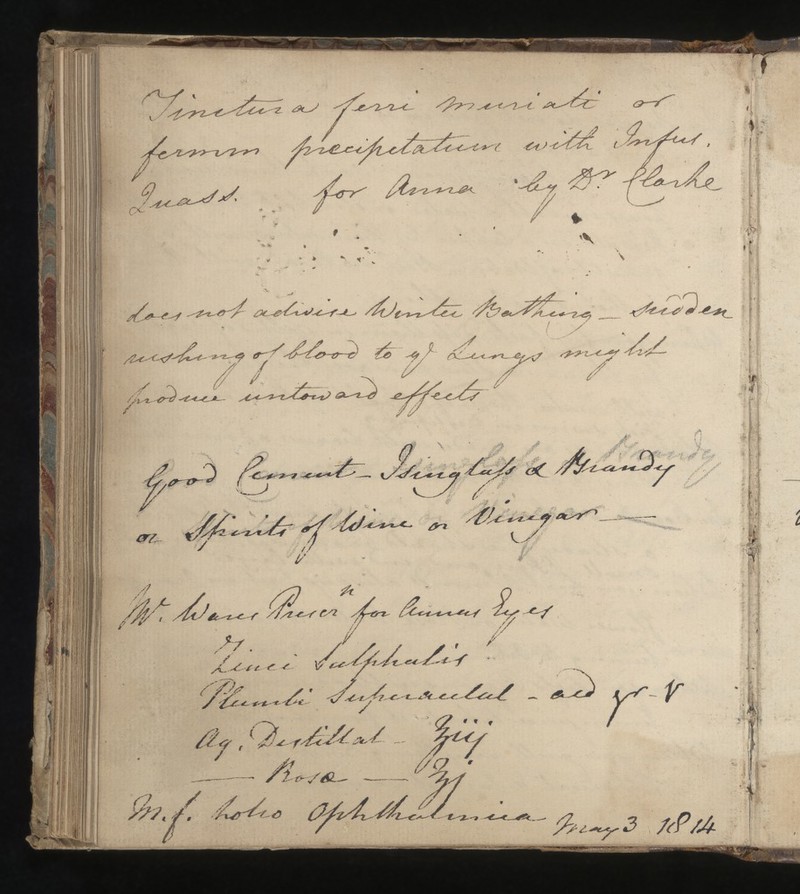 Tinctura ferri muriati or
ferrum precipetatum with Infus.
Quass. for Anna by Dr. Clarke
does not advise Winter Bathing - sudden
rushing of blood to ye Lungs might
produce untoward effects
Good Cement - Isinglass & Brandy
or Spirits of Wine or Vinegar —
Mr. Wares Prescrn for Annas Eyes
Zinci Sulphatis
Plumbi Superacetat - aa gr. V
Aq. Destillat - ℥iij
—— Rosæ — ℥j
M.f. Lotio Ophthalmica May 3 1814